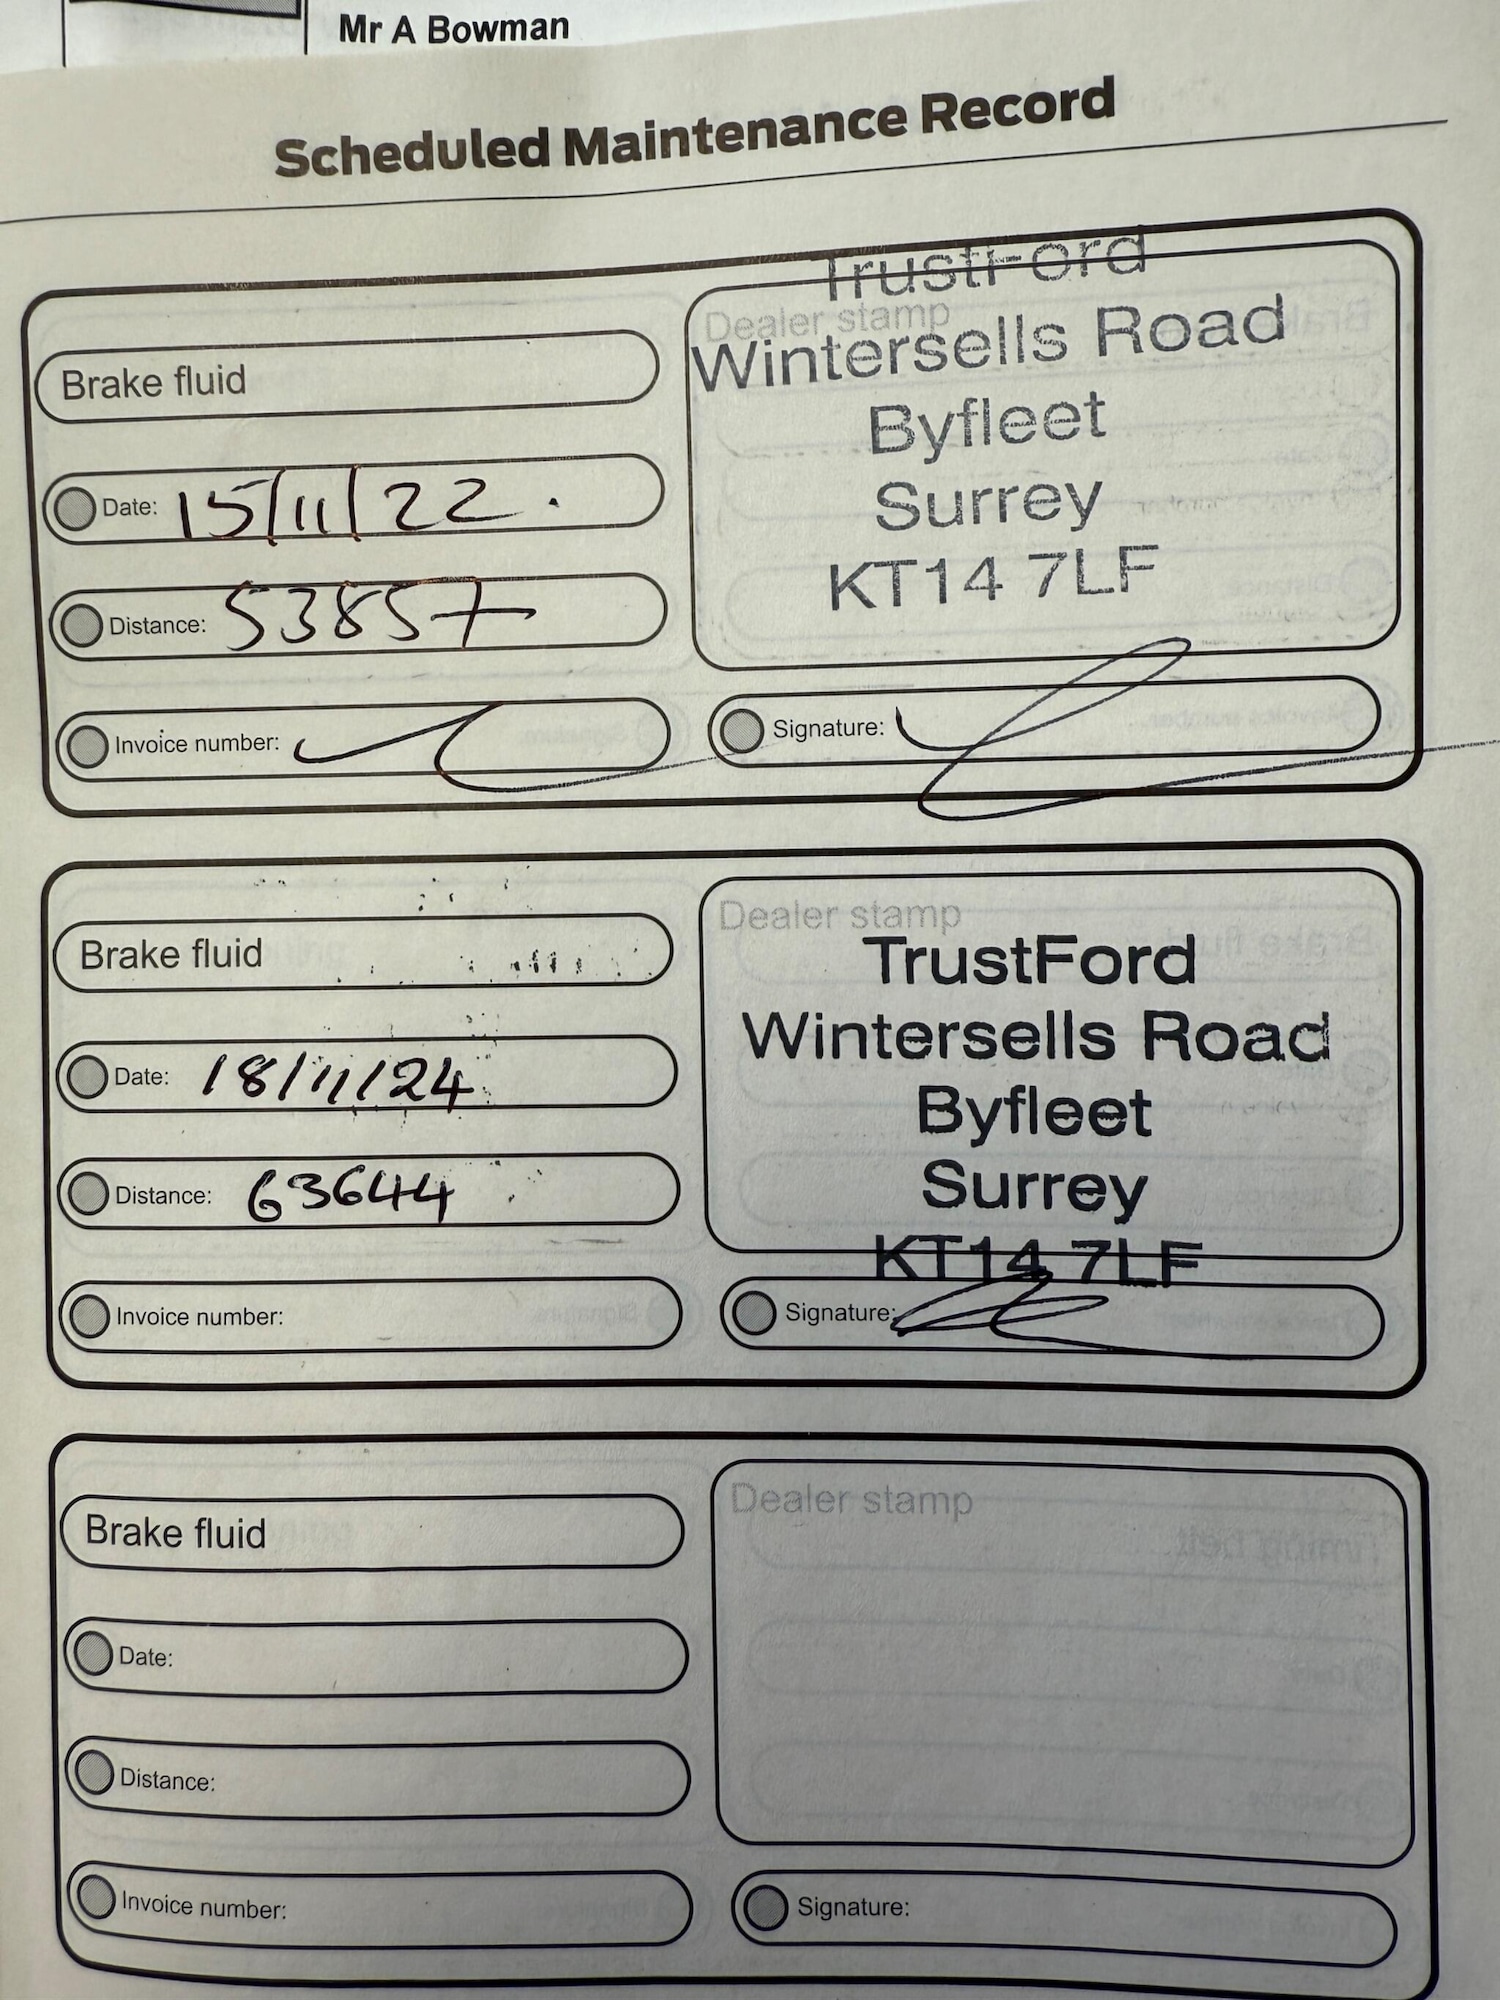 Mr A Bowman
Scheduled Maintenance Record
Brake fluid
Date: 15/11/22.
Distance: 53857
Invoice number:
Dealer stamp
TrustFord
Wintersells Road
Byfleet
Surrey
KT14 7LF
Signature:
Brake fluid
Date: 18/11/24
Distance: 63644
Invoice number:
Dealer stamp
TrustFord
Wintersells Road
Byfleet
Surrey
KT14 7LF
Signature:
Brake fluid
Date:
Distance:
Invoice number:
Dealer stamp
Signature: